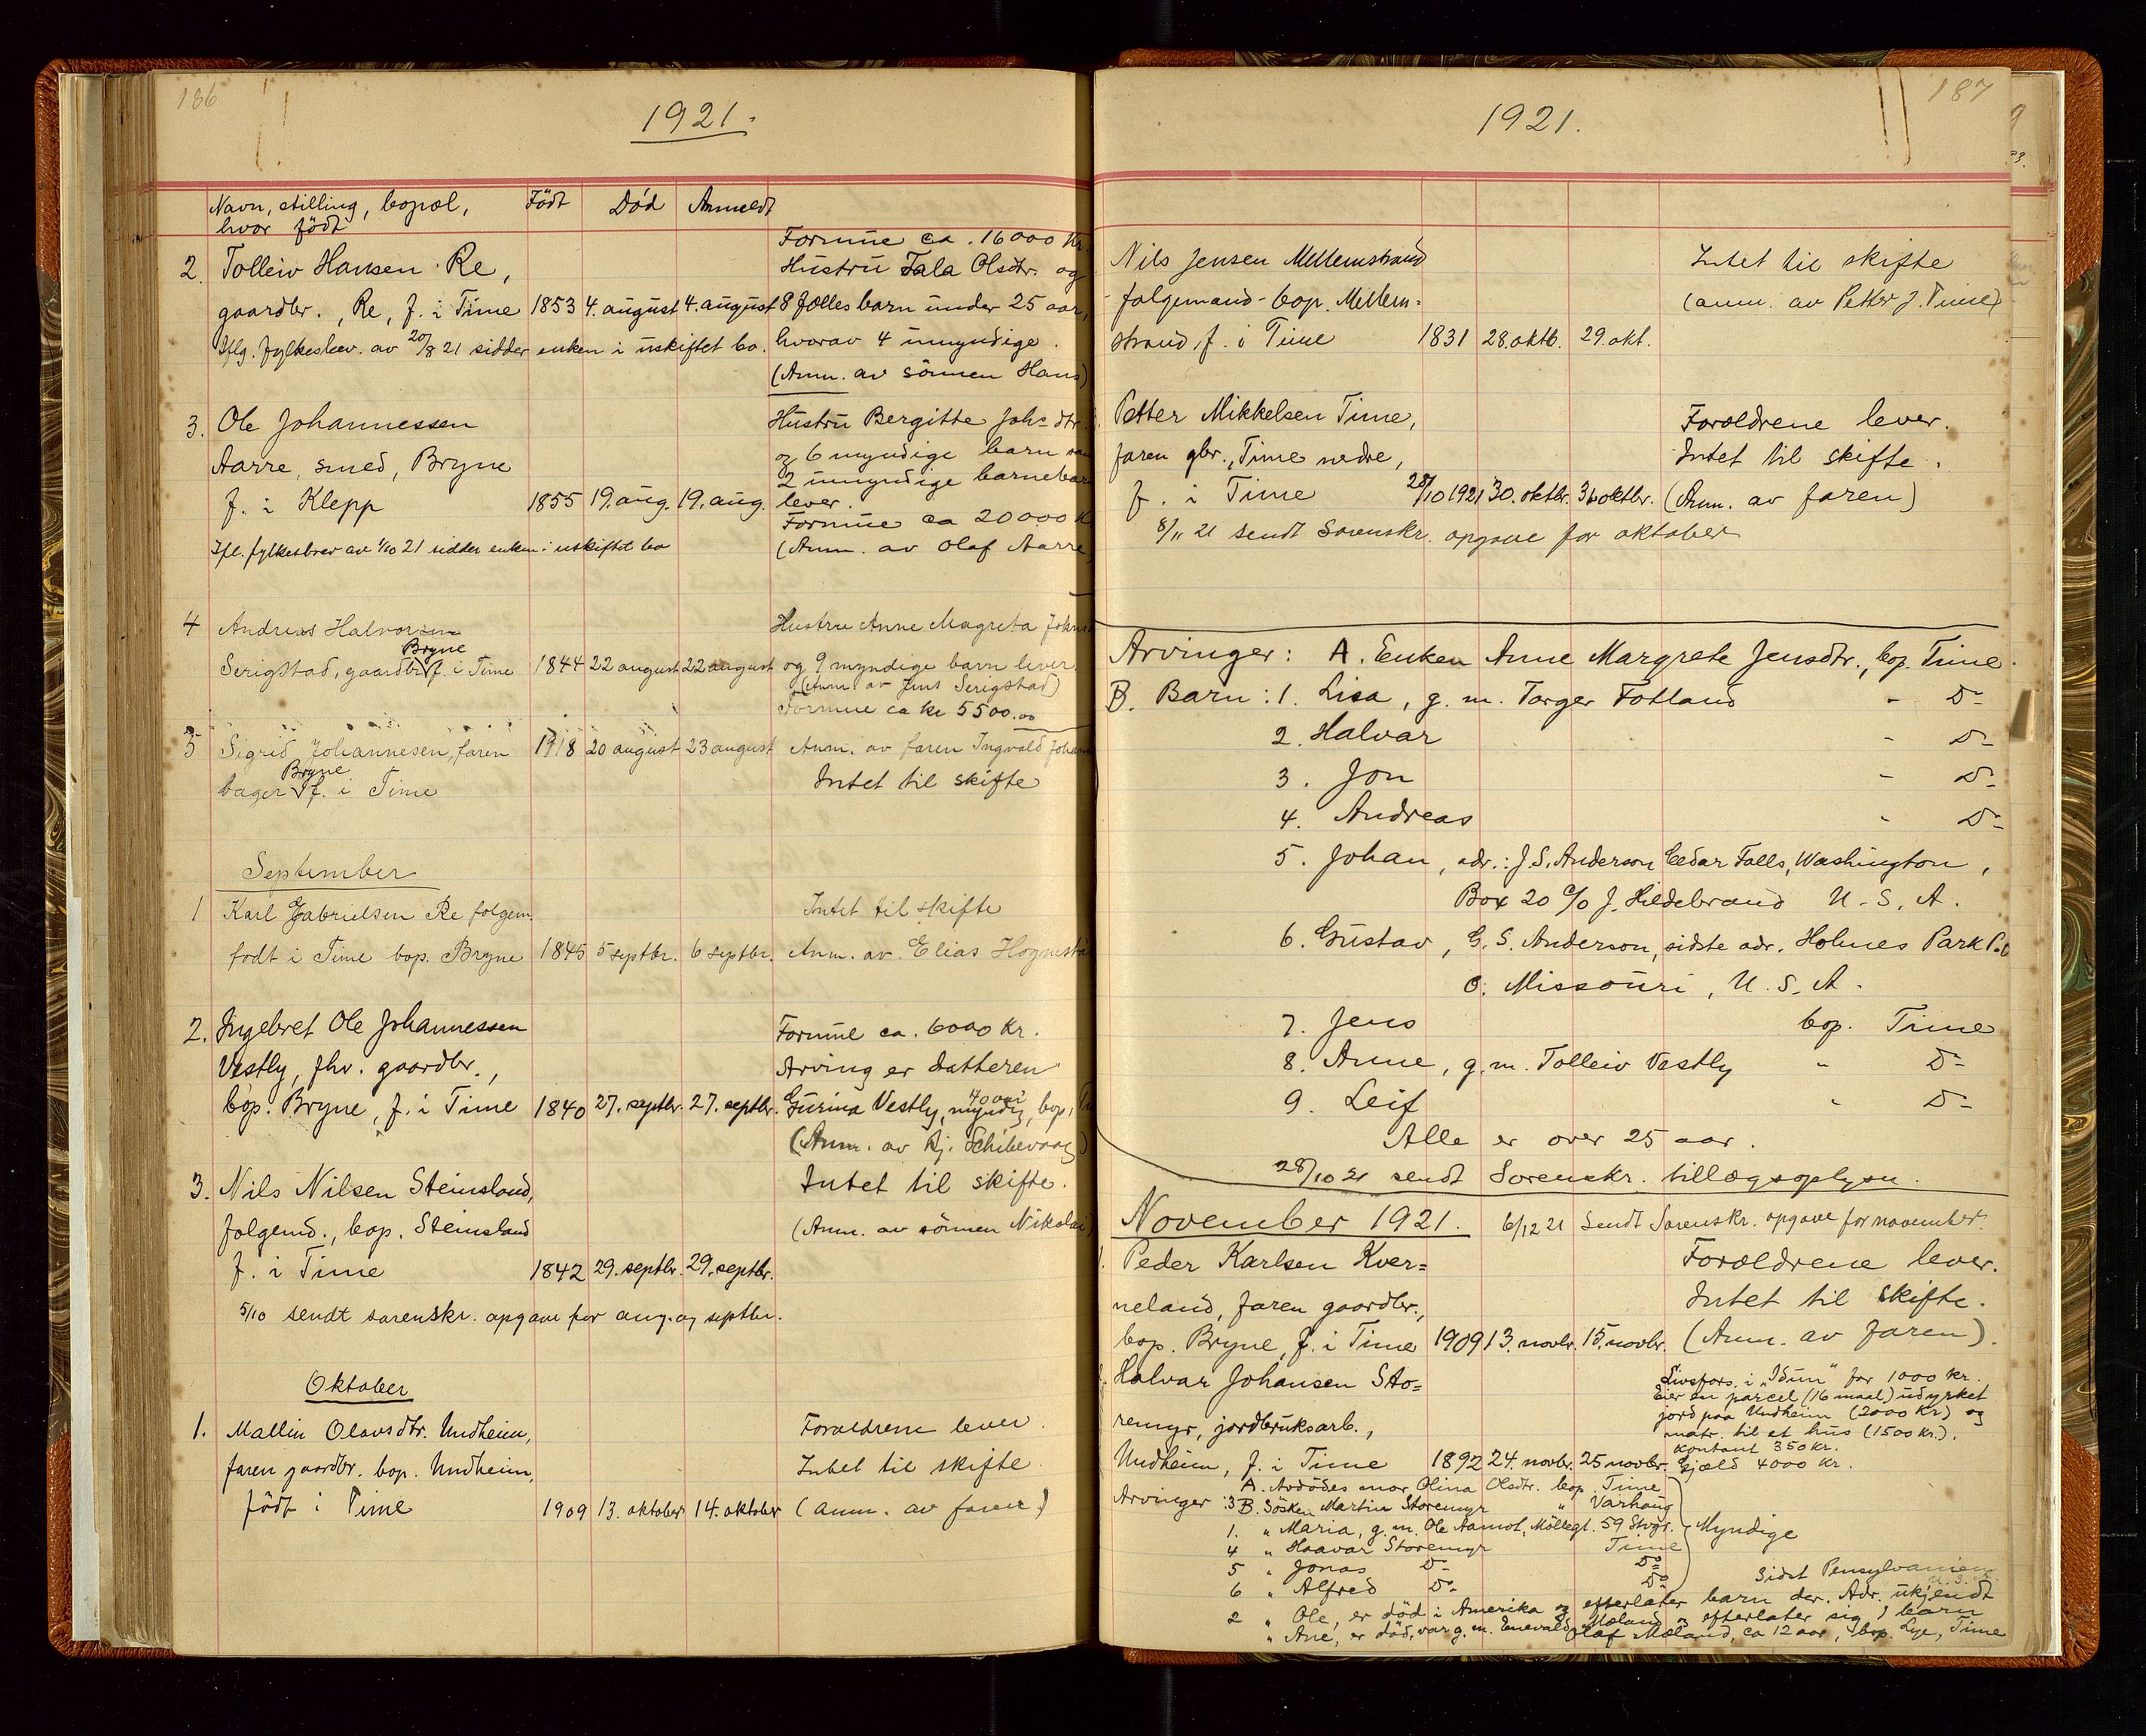 186
1921.
Navn, stilling, bopæl, Født Död Anmeldt
hvor födt
Formue ca. 16000 Kr.
2. Tolleiv Hansen Re, Hustru Tala Olsdtr. og
gaardbr., Re, f. i Time 1853 4. august 4. august 8 fælles barn under 25 aar,
Iflg. fylkesbrev. av 20/8 21 sidder enken i uskiftet bo. hvorav 4 umyndige.
(Anm. av sönnen Hans)
3. Ole Johannessen Hustru Bergitte Johs dtr.
Aarre, smed, Bryne og 6 myndige barn
2 umyndige barnebarn
f. i Klepp 1855 19. aug. 19. aug. lever.
Formue ca 20000 K
Ifl. fylkesbrev av 1/10 21 sidder enken i uskiftet bo (Anm. av Olaf Aarre
4 Andreas Halvorsen Hustru Anne Magreta
Bryne
Serigstad, gaardbr f. i Time 1844 22 august 22 august og 9 myndige barn lever
(Anm av Jens Serigstad)
Formue ca kr 5500.00
5 Sigrid Johannesen, faren 1918 20 august 23 august Anm. av faren Ingvald Johan
Bryne
bager f. i Time Intet til skifte
September
1 Karl Gabrielsen Re folgem. Intet til skifte
født i Time bop. Bryne 1845 5 septbr. 6 septbr. Anm. av Elias Hognesta
2. Ingebret Ole Johannessen Formue ca. 6000 Kr.
Vestly, fhv. gaardbr., Arving er datteren
40 aar
bop. Bryne, f. i Time 1840 27. septbr. 27. septbr. Gurina Vestly, myndig, bop.
(Anm. av Kj. Schibevaag)
3. Nils Nilsen Steinsland, Intet til skifte.
folgemd., bop. Steinsland (Anm. av sönnen Nikolai)
f. i Time 1842 29. septbr. 29. septbr.
5/10 sendt sorenskr. opgave for aug. og septbr.
Oktober
1. Mallin Olavsdtr. Undheim, Forældrene lever.
faren gaardbr. bop. Undheim, Intet til skifte.
födt i Time 1909 13. oktober 14. oktober (anm. av faren)
187
1921.
Nils Jensen Mellemstrand Intet til skifte
folgemand - bop. Mellem= (anm. av Petter J. Time)
strand, f. i Time 1831 28. oktb. 29. okt.
Petter Mikkelsen Time, Forældrene lever.
faren gbr., Time nedre, Intet til skifte.
f. i Time 28/10 1921 30. oktbr. 31 oktbr. (Anm. av faren)
8/11 21 sendt Sorenskr. opgave for oktober
Arvinger: A. Enken Anne Margrete Jensdtr., bop. Time.
B. Barn: 1. Lisa, g. m. Torger Fotland " Do
2. Halvar " Do
3. Jon " Do
4. Andreas " Do
5. Johan, adr.: J. S. Anderson Cedar Falls, Washington,
Box 20 c/o J. Hildebrand U. S. A.
6. Gustav, G. S. Anderson, sidste adr. Holmes Park P.
O. Missouri, U. S. A.
7. Jens bop. Time
8. Anne, g. m. Tolleiv Vestly " Do
9. Leif " Do
Alle er over 25 aar.
28/10 21 sendt Sorenskr. tillægsoplysn.
November 1921. 6/12 21 Sendt Sorenskr. opgave for november.
1. Peder Karlsen Kver= Forældrene lever.
neland, faren gaardbr., Intet til skifte.
bop. Bryne, f. i Time 1909 13. novbr. 15. novbr. (Anm. av faren).
Halvar Johansen Sto= Livsfors. i "Idun" for 1000 kr.
Eier en parcel (16 maal) udyrket
remyr, jordbruksarb., jord paa Undheim (2000 Kr) og
matr. til et hus (1500 Kr.).
kontant 350 kr.
Undheim, f. i Time 1892 24. novbr. 25 novbr. Gjæld 4000 kr.
A. Avdödes mor Olina Olsdtr. bop. Time
Arvinger: 3 B. Sösken Martin Storemyr " Varhaug
1. " Maria, g. m. Ole Aamot, Möllegt. 59 Stvgr. Myndige
4 " Haavar Storemyr Time
5 " Jonas Do Do
6 " Alfred Do Do Sidst Pensylvanien
U. S. A.
2 " Ole, er död i Amerika og efterlater barn der. Adr. ukjendt
" Ane, er död, var g. m. Enevald Mæland og efterlater sig 1 barn
Olaf Mæland, ca 12 aar, bop. Lye, Time